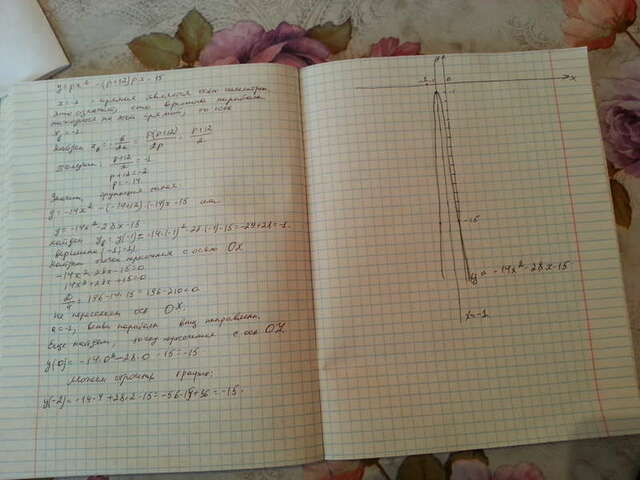 y = px² - (p+12)px - 15
x = -1 - прямая является осью симметрии
это означает, что вершина параболы
находится на этой прямой, то есть
x в = -1
Найдем x в = -b/2a = p(p+12)/2p = p+12/2
Получаем: p+12/2 = -1
p+12 = -2
p = -14
Значит, функция такая:
y = -14x² - (-14+12)·(-14)x - 15
y = -14x² - 28x - 15
Найдем y в: y(-1) = -14·(-1)² - 28·(-1) - 15 = -29+28 = -1
Вершина (-1; -1)
Найдем точки пересечения с осью OX
-14x² - 28x - 15 = 0
14x² + 28x + 15 = 0
D/4 = 196 - 14·15 = 196 - 210 < 0
не пересекает ось OX.
ветви параболы вниз направлены.
Еще найдем, точку пересечения с ось OY
y(0) = -14·0² - 28·0 - 15 = -15
Можем строить график:
y(-2) = -14·4 + 28·2 - 15 = -15.
-1
0
x
-1
-15
y = -14x² - 28x - 15
x = -1